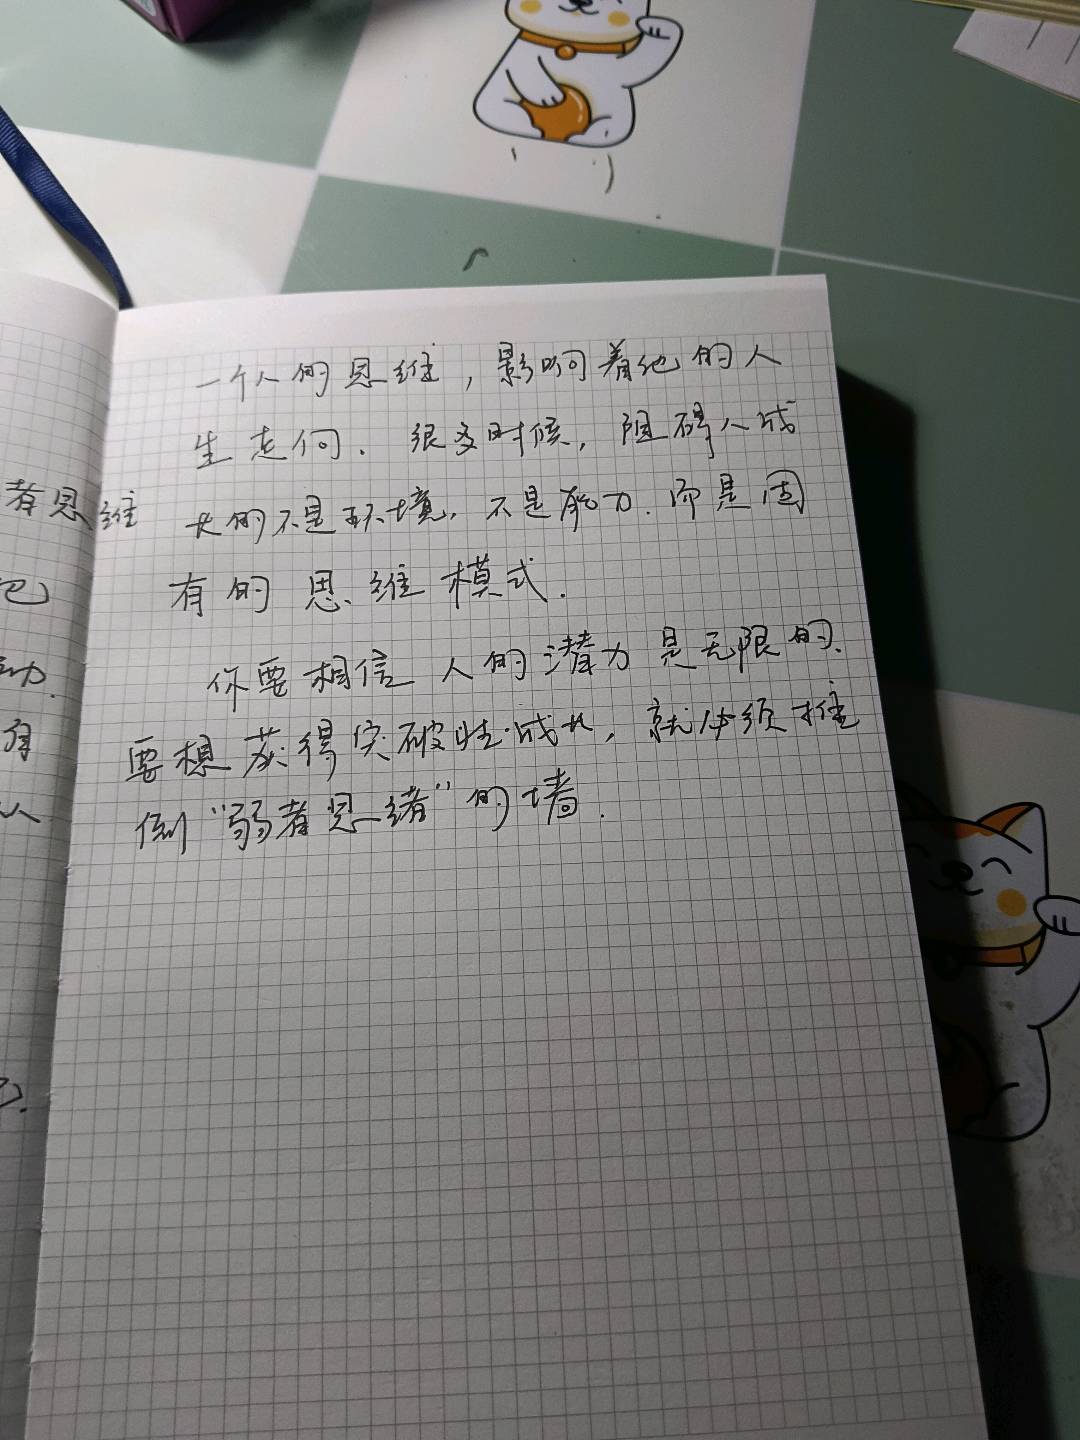 者思维
巴
动.
有
从
一个人的思维，影响着他的人
生走向. 很多时候，阻碍人成
长的不是环境，不是能力.而是固
有的思维模式.
你要相信人的潜力是无限的.
要想获得突破性成长，就必须推
倒"弱者思绪"的墙.